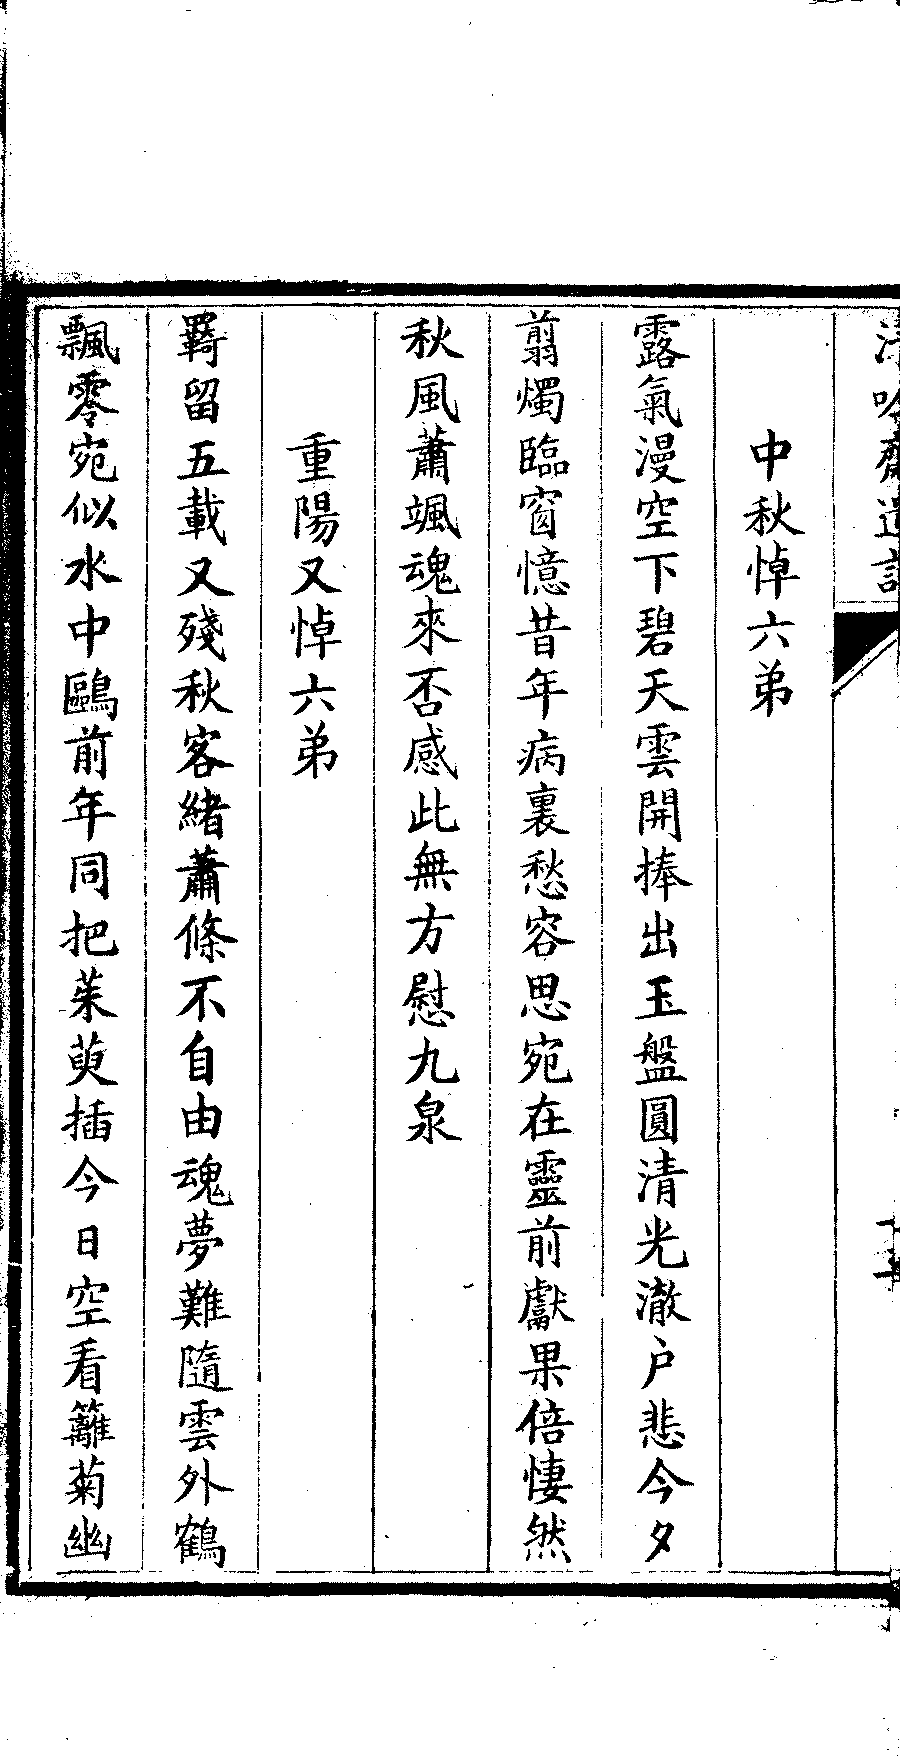 中秋悼六弟
露氣漫空下碧天雲開捧出玉盤圓清光澈户悲今夕
翦燭臨窗憶昔年病裏愁容思宛在靈前獻果倍悽然
秋風蕭颯魂來否感此無方慰九泉
重陽又悼六弟
羇留五載又殘秋客緒蕭條不自由魂夢難隨雲外鶴
飄零宛似水中鷗前年同把茱萸插今日空看籬菊幽